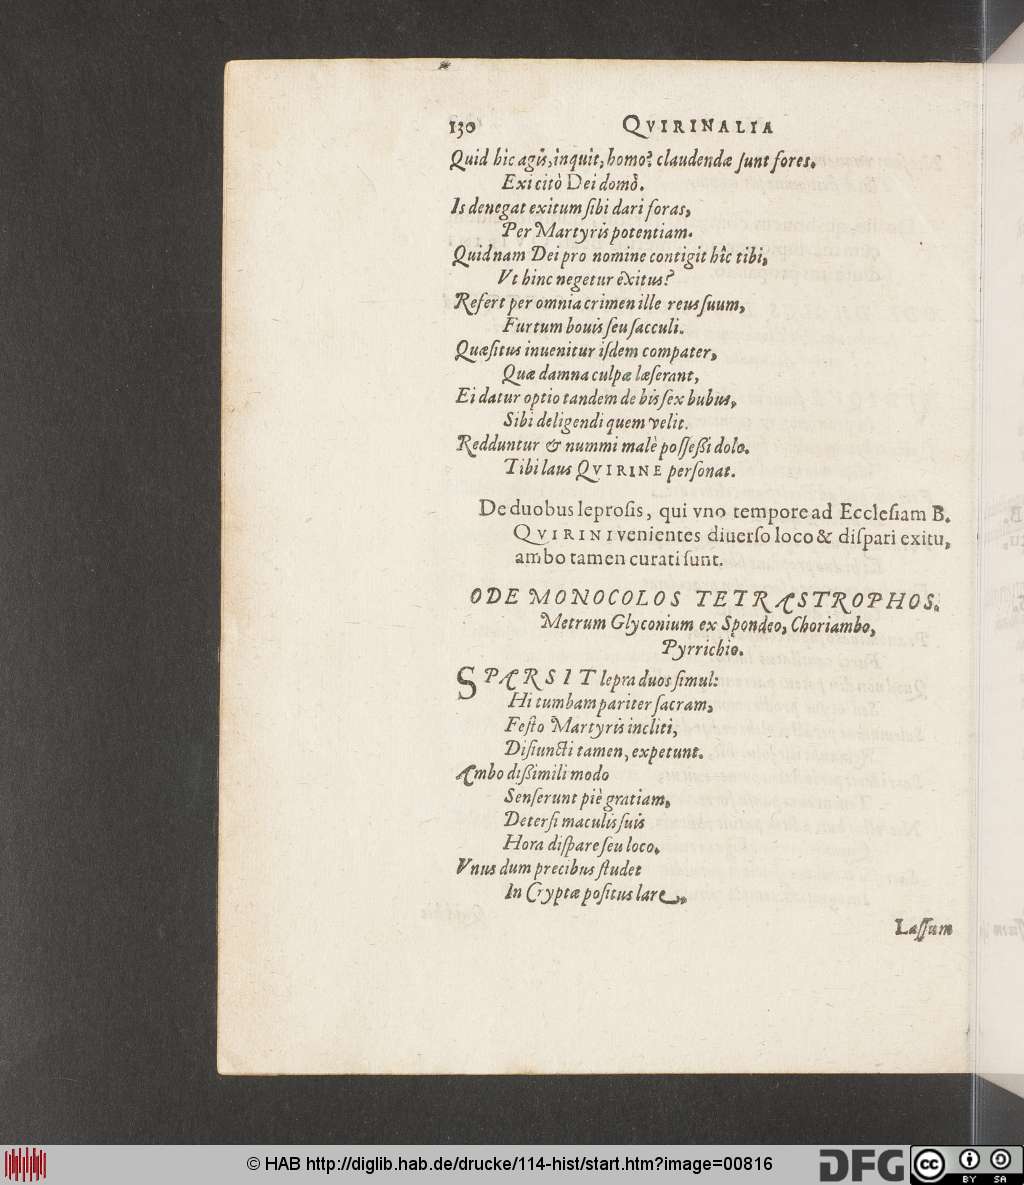 130 QVIRINALIA
Quid hîc agis, inquit, homo? claudendæ sunt fores.
Exi citò Dei domô.
Is denegat exitum sibi dari foras,
Per Martyris potentiam.
Quidnam Dei pro nomine contigit hîc tibi,
Vt hinc negetur exitus?
Refert per omnia crimen ille reus suum,
Furtum bouis seu sacculi.
Quæsitus inuenitur isdem compater,
Quæ damna culpæ læserant,
Ei datur optio tandem de bis sex bubus,
Sibi deligendi quem velit.
Redduntur & nummi malè possessi dolo.
Tibi laus QVIRINE personat.
De duobus leprosis, qui vno tempore ad Ecclesiam B.
QVIRINI venientes diuerso loco & dispari exitu,
ambo tamen curati sunt.
ODE MONOCOLOS TETRASTROPHOS.
Metrum Glyconium ex Spondeo, Choriambo,
Pyrrichio.
SPARSIT lepra duos simul:
Hi tumbam pariter sacram,
Festo Martyris incliti,
Disiuncti tamen, expetunt.
Ambo dissimili modo
Senserunt piè gratiam,
Detersi maculis suis
Hora dispare seu loco.
Vnus dum precibus studet
In Cryptæ positus lare,
Lassum
© HAB http://diglib.hab.de/drucke/114-hist/start.htm?image=00816
DFG cc BY SA